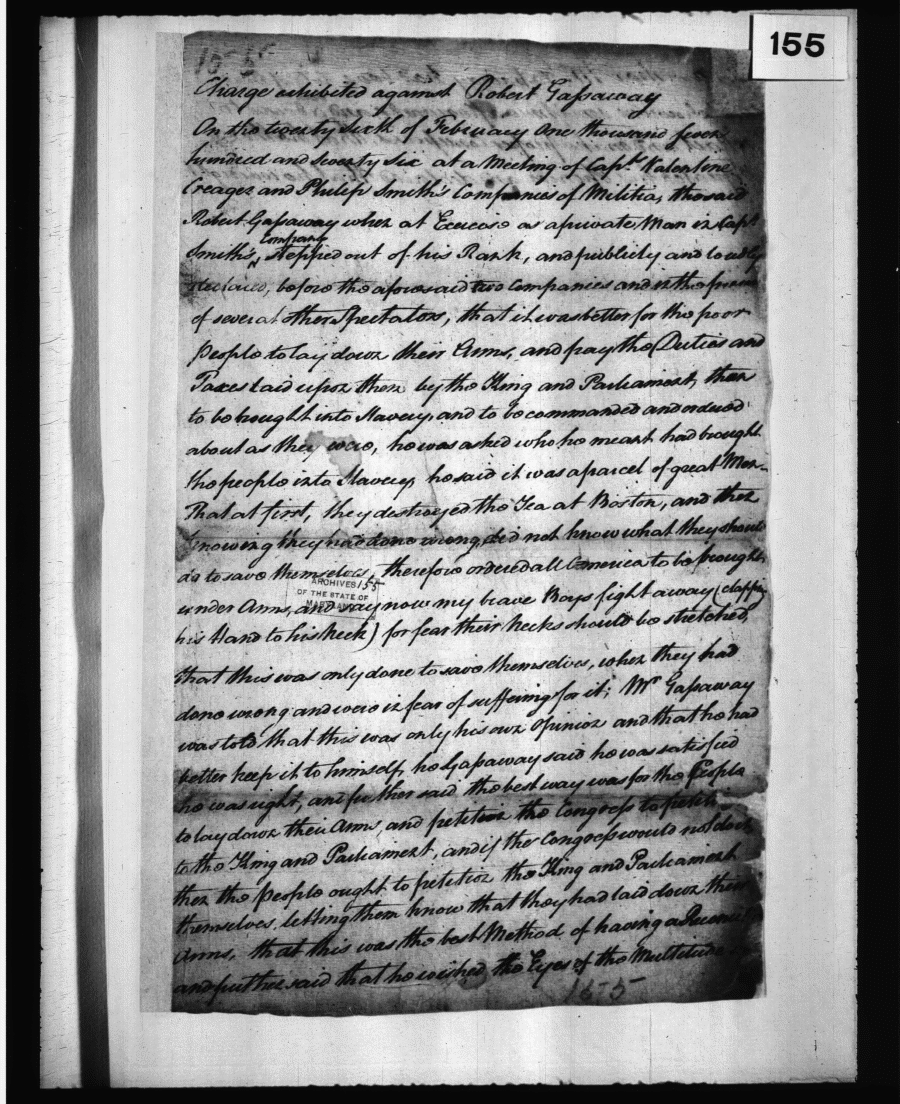 155
155
Charge exhibited against Robert Gassaway
On the twenty sixth of February One thousand seven
hundred and seventy six at a Meeting of Capt. Valentine
Creager and Philip Smith's Companies of Militia, the said
Robert Gassaway when at Exercise as a private Man in Capt
Company
Smith's, stepped out of his Rank, and publicly and loudly
declared, before the aforesaid two Companies and in the
of several other Spectators, that it was better for the poor
People to lay down their Arms, and pay the Duties and
Taxes laid upon them by the King and Parliament, then
to be bought into Slavery, and to be commanded and ordered
about as they were, he was asked who he meant had brought
the people into Slavery, he said it was a parcel of great Men
That at first, they destroyed the Tea at Boston, and then
knowing they had done wrong, did not know what they should
do to save themselves, therefore ordered all America to be brought
ARCHIVES 155
OF THE STATE OF
MARYLAND
under Arms, and say now my brave Boys fight away (clapping
his Hand to his Neck) for fear their Necks should be stretched,
that this was only done to save themselves, when they had
done wrong and were in fear of suffering for it; Mr Gassaway
was told that this was only his own Opinion and that he had
better keep it to himself, he Gassaway said he was satisfied
he was right, and further said the best way was for the People
to lay down their Arms, and petition the Congress to petition
to the King and Parliament, and if the Congress would not do it
then the People ought to petition the King and Parliament
themselves, letting them know that they had laid down their
Arms, that this was the best Method of having a
and further said that he wished the Eyes of the Multitude
155